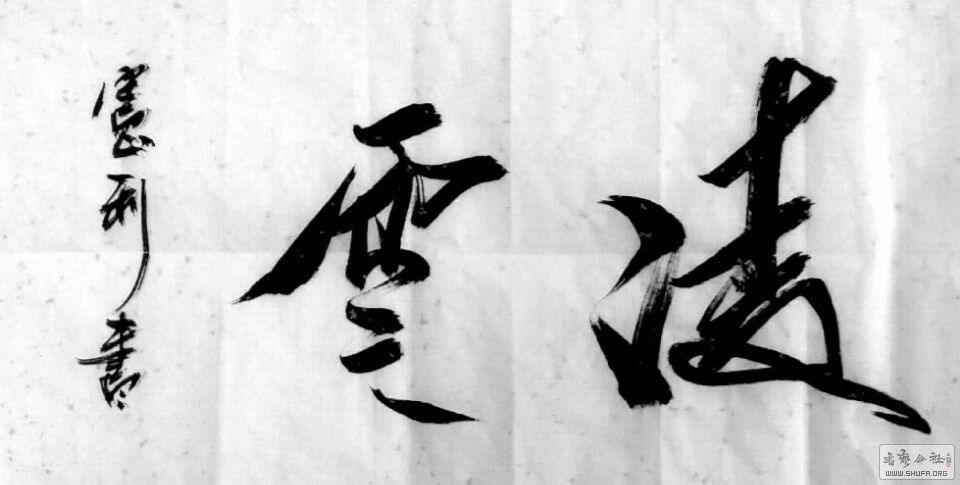 凌雲
憲利書
书艺公社
WWW.SHUFA.ORG